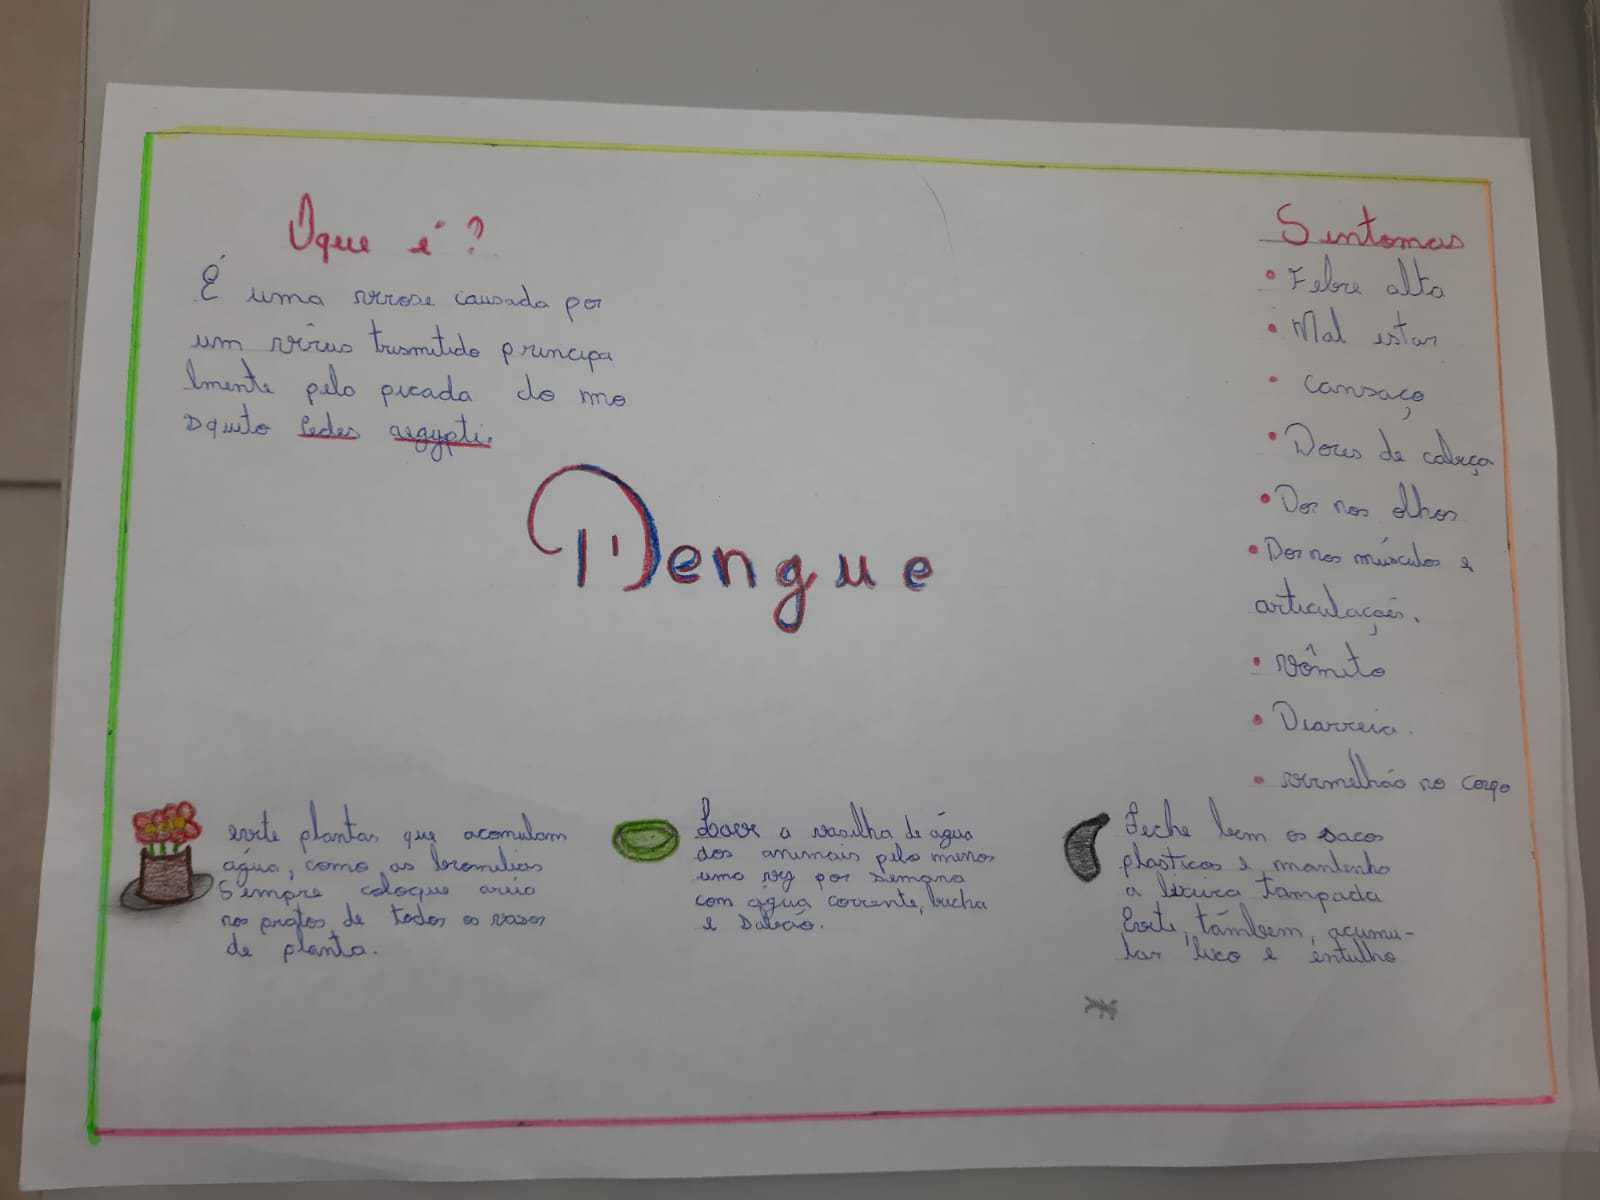 O que é?
É uma virose causada por
um vírus trasmitido principa
lmente pelo picada do mo
squito aedes aegypti.
Dengue
Sintomas
• Febre alta
• Mal estar
• Cansaço
• Dores de cabeça
• Dor nos olhos
• Dor nos músculos e
articulações.
• vômito
• Diarreia.
• vermelhão no corpo
evite plantas que acomulam
água, como as bromelias
Sempre coloque areia
nos pratos, de todos os vasos
de planta.
Lave a vasilha de água
dos animais pelo menos
uma vez por semana
com água corrente, bucha
e sabão.
Feche bem os sacos
plasticos e mantenha
a lixeira tampada
Evite, támbem, acumu-
lar lixo e entulho